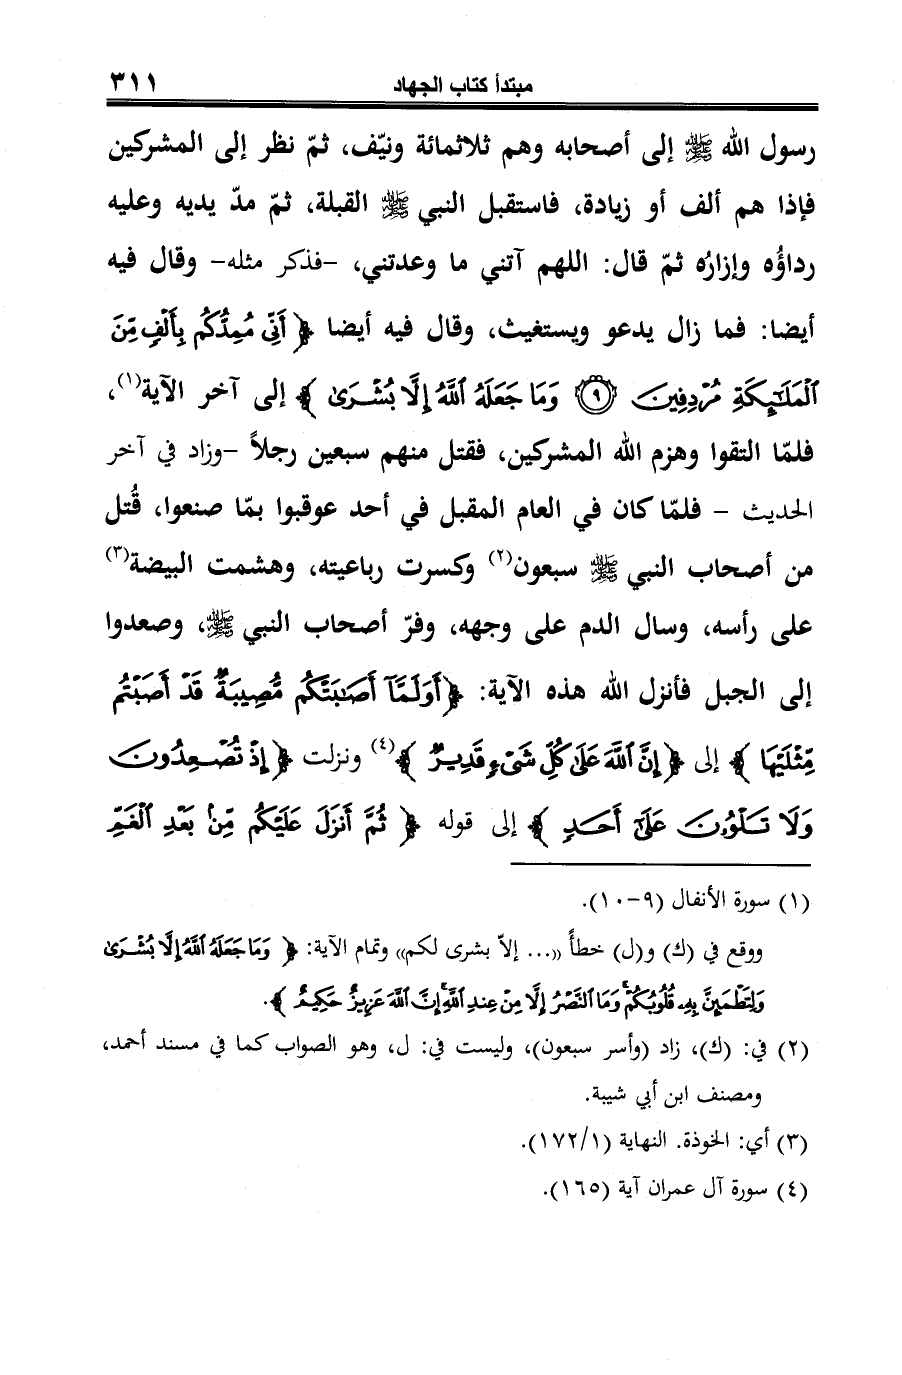 مبتدأ كتاب الجهاد ٣١١
رسول الله ﷺ إلى أصحابه وهم ثلاثمائة ونيّف، ثمّ نظر إلى المشركين
فإذا هم ألف أو زيادة، فاستقبل النبي ﷺ القبلة، ثمّ مدّ يديه وعليه
رداؤُه وإزارُه ثمّ قال: اللهم آتني ما وعدتني، -فذكر مثله- وقال فيه
أيضا: فما زال يدعو ويستغيث، وقال فيه أيضا ﴿ أَنِّي مُمِدُّكُم بِأَلْفٍ مِّنَ
الْمَلَٰٓئِكَةِ مُرْدِفِينَ ۝٩ وَمَا جَعَلَهُ اللَّهُ إِلَّا بُشْرَىٰ ﴾ إلى آخر الآية(١)،
فلمّا التقوا وهزم الله المشركين، فقتل منهم سبعين رجلاً -وزاد في آخر
الحديث - فلمّا كان في العام المقبل في أحد عوقبوا بمّا صنعوا، قُتل
من أصحاب النبي ﷺ سبعون(٢) وكسرت رباعيته، وهشمت البيضة(٣)
على رأسه، وسال الدم على وجهه، وفرّ أصحاب النبي ﷺ، وصعدوا
إلى الجبل فأنزل الله هذه الآية: ﴿أَوَلَمَّآ أَصَٰبَتْكُم مُّصِيبَةٌ قَدْ أَصَبْتُم
مِّثْلَيْهَا ﴾ إلى ﴿إِنَّ اللَّهَ عَلَىٰ كُلِّ شَىْءٍ قَدِيرٌ ﴾(٤) ونزلت ﴿ إِذْ تُصْعِدُونَ
وَلَا تَلْوُۥنَ عَلَىٰٓ أَحَدٍ ﴾ إلى قوله ﴿ ثُمَّ أَنزَلَ عَلَيْكُم مِّنۢ بَعْدِ الْغَمِّ
(١) سورة الأنفال (٩-١٠).
ووقع في (ك) و(ل) خطأً «... إلاّ بشرى لكم» وتمام الآية: ﴿ وَمَا جَعَلَهُ اللَّهُ إِلَّا بُشْرَىٰ
وَلِتَطْمَئِنَّ بِهِۦ قُلُوبُكُمْ ۚ وَمَا النَّصْرُ إِلَّا مِنْ عِندِ اللَّهِ ۚ إِنَّ اللَّهَ عَزِيزٌ حَكِيمٌ ﴾.
(٢) في: (ك)، زاد (وأسر سبعون)، وليست في: ل، وهو الصواب كما في مسند أحمد،
ومصنف ابن أبي شيبة.
(٣) أي: الخوذة. النهاية (١٧٢/١).
(٤) سورة آل عمران آية (١٦٥).